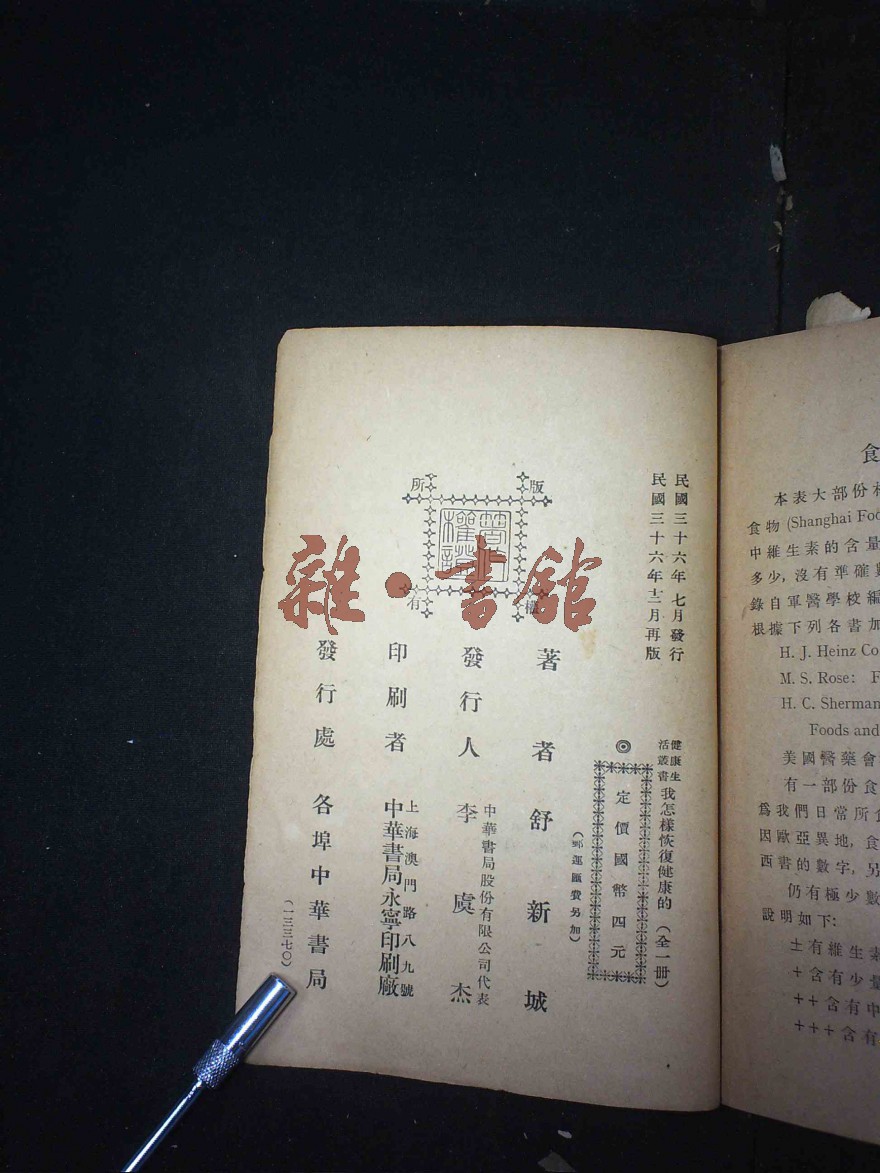 民國三十六年七月發行
民國三十六年十二月再版
健康生活叢書
我怎樣恢復健康的（全一冊）
◎定價國幣四元
（郵運匯費另加）
版權所有
著者 舒新城
發行人 李虞杰
中華書局股份有限公司代表
印刷者 中華書局永寧印刷廠
上海澳門路八九號
發行處 各埠中華書局
（一三三七〇）
雜·書館
食
本表大部份
食物 (Shanghai Foo
中維生素的含量
多少，沒有準確
錄自軍醫學校編
根據下列各書加
H. J. Heinz Co
M. S. Rose: F
H. C. Sherman
Foods and
美國醫藥會
有一部份食
爲我們日常所食
因歐亞異地，食
西書的數字，另
仍有極少數
說明如下：
±有維生素
+含有少量
++含有中
+++含有